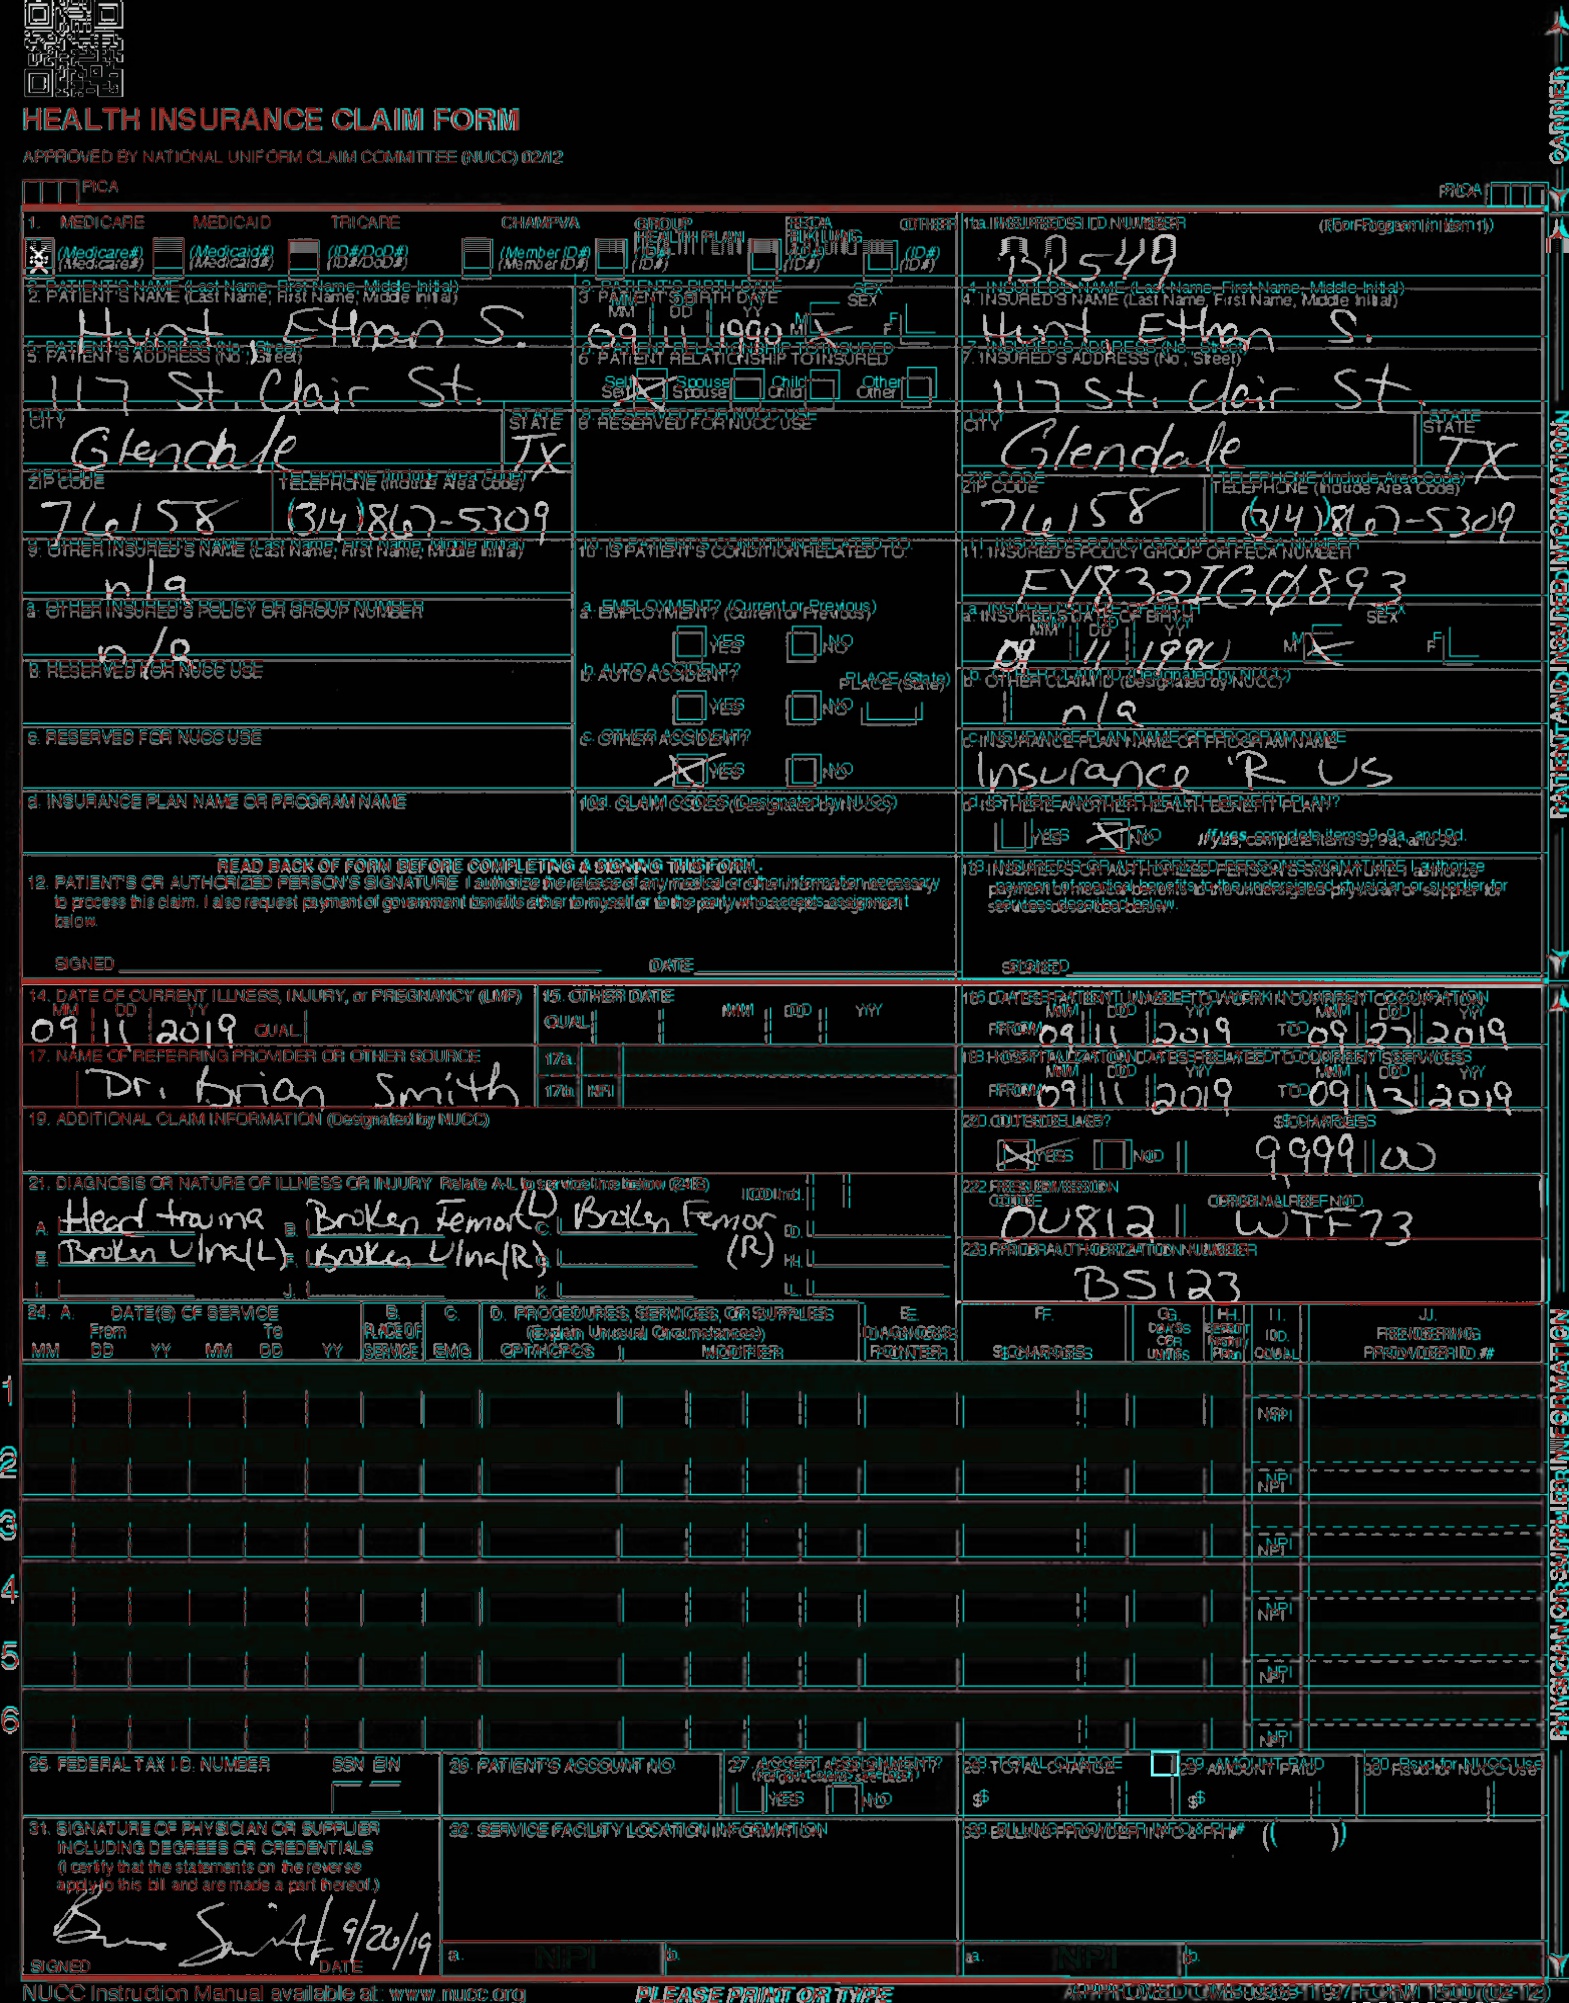 HEALTH INSURANCE CLAIM FORM
APPROVED BY NATIONAL UNIFORM CLAIM COMMITTEE (NUCC) 02/12
PICA
PICA
CARRIER
1. MEDICARE MEDICAID TRICARE CHAMPVA GROUP HEALTH PLAN FECA BLK LUNG OTHER
(Medicare#) (Medicaid#) (ID#/DoD#) (Member ID#) (ID#) (ID#) (ID#)
1a. INSURED'S I.D. NUMBER (For Program in Item 1)
BR549
2. PATIENT'S NAME (Last Name, First Name, Middle Initial)
Hunt, Ethan S.
3. PATIENT'S BIRTH DATE SEX
MM DD YY
09 11 1990 M X F
4. INSURED'S NAME (Last Name, First Name, Middle Initial)
Hunt Ethan S.
5. PATIENT'S ADDRESS (No., Street)
117 St. Clair St.
6. PATIENT RELATIONSHIP TO INSURED
Self X Spouse Child Other
7. INSURED'S ADDRESS (No., Street)
117 St. Clair St.
CITY STATE
Glendale TX
8. RESERVED FOR NUCC USE
CITY STATE
Glendale TX
ZIP CODE TELEPHONE (Include Area Code)
76158 (314)867-5309
ZIP CODE TELEPHONE (Include Area Code)
76158 (314)867-5309
9. OTHER INSURED'S NAME (Last Name, First Name, Middle Initial)
n/a
10. IS PATIENT'S CONDITION RELATED TO:
11. INSURED'S POLICY GROUP OR FECA NUMBER
FY832IGØ893
a. OTHER INSURED'S POLICY OR GROUP NUMBER
n/a
a. EMPLOYMENT? (Current or Previous)
YES NO
a. INSURED'S DATE OF BIRTH SEX
MM DD YY
09 11 1990 M X F
b. RESERVED FOR NUCC USE
b. AUTO ACCIDENT? PLACE (State)
YES NO
b. OTHER CLAIM ID (Designated by NUCC)
n/a
c. RESERVED FOR NUCC USE
c. OTHER ACCIDENT?
X YES NO
c. INSURANCE PLAN NAME OR PROGRAM NAME
Insurance 'R US
d. INSURANCE PLAN NAME OR PROGRAM NAME
10d. CLAIM CODES (Designated by NUCC)
d. IS THERE ANOTHER HEALTH BENEFIT PLAN?
YES X NO If yes, complete items 9, 9a, and 9d.
READ BACK OF FORM BEFORE COMPLETING & SIGNING THIS FORM.
12. PATIENT'S OR AUTHORIZED PERSON'S SIGNATURE I authorize the release of any medical or other information necessary
to process this claim. I also request payment of government benefits either to myself or to the party who accepts assignment
below.
SIGNED DATE
13. INSURED'S OR AUTHORIZED PERSON'S SIGNATURE I authorize
payment of medical benefits to the undersigned physician or supplier for
services described below.
SIGNED
PATIENT AND INSURED INFORMATION
14. DATE OF CURRENT ILLNESS, INJURY, or PREGNANCY (LMP)
MM DD YY
09 11 2019 QUAL.
15. OTHER DATE
QUAL. MM DD YY
16. DATES PATIENT UNABLE TO WORK IN CURRENT OCCUPATION
MM DD YY MM DD YY
FROM 09 11 2019 TO 09 27 2019
17. NAME OF REFERRING PROVIDER OR OTHER SOURCE
Dr. Brian Smith
17a.
17b. NPI
18. HOSPITALIZATION DATES RELATED TO CURRENT SERVICES
MM DD YY MM DD YY
FROM 09 11 2019 TO 09 13 2019
19. ADDITIONAL CLAIM INFORMATION (Designated by NUCC)
20. OUTSIDE LAB? $ CHARGES
X YES NO 9999 00
21. DIAGNOSIS OR NATURE OF ILLNESS OR INJURY Relate A-L to service line below (24E) ICD Ind.
A. Head trauma B. Broken Femor(L) C. Broken Femor (R) D.
E. Broken Ulna(L) F. Broken Ulna(R) G. H.
I. J. K. L.
22. RESUBMISSION CODE ORIGINAL REF. NO.
OU812 WTF73
23. PRIOR AUTHORIZATION NUMBER
BS123
24. A. DATE(S) OF SERVICE B. C. D. PROCEDURES, SERVICES, OR SUPPLIES E. F. G. H. I. J.
From To PLACE OF (Explain Unusual Circumstances) DIAGNOSIS DAYS OR EPSDT Family ID. RENDERING
MM DD YY MM DD YY SERVICE EMG CPT/HCPCS MODIFIER POINTER $ CHARGES UNITS Plan QUAL. PROVIDER ID. #
1 NPI
2 NPI
3 NPI
4 NPI
5 NPI
6 NPI
PHYSICIAN OR SUPPLIER INFORMATION
25. FEDERAL TAX I.D. NUMBER SSN EIN
26. PATIENT'S ACCOUNT NO.
27. ACCEPT ASSIGNMENT?
(For govt. claims, see back)
YES NO
28. TOTAL CHARGE
$
29. AMOUNT PAID
$
30. Rsvd for NUCC Use
31. SIGNATURE OF PHYSICIAN OR SUPPLIER
INCLUDING DEGREES OR CREDENTIALS
(I certify that the statements on the reverse
apply to this bill and are made a part thereof.)
Brian Smith 9/20/19
SIGNED DATE
32. SERVICE FACILITY LOCATION INFORMATION
a. NPI b.
33. BILLING PROVIDER INFO & PH # ( )
a. NPI b.
NUCC Instruction Manual available at: www.nucc.org
PLEASE PRINT OR TYPE
APPROVED OMB-0938-1197 FORM 1500 (02-12)